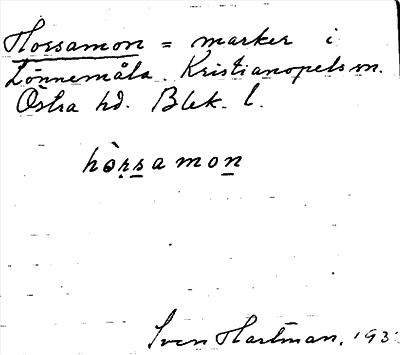 Horsamon = marker i
Lönnemåla. Kristianopels sn.
Östra hd. Blek. l.
hòṛs̲amon̲
Sven Hartman, 193